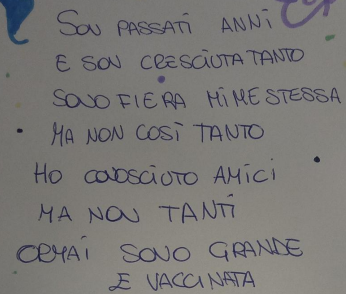 SON PASSATI ANNI
E SON CRESCIUTA TANTO
SONO FIERA MIMESTESSA
MA NON COSÌ TANTO
HO CONOSCIUTO AMICI
MA NON TANTI
ORMAI SONO GRANDE
E VACCINATA